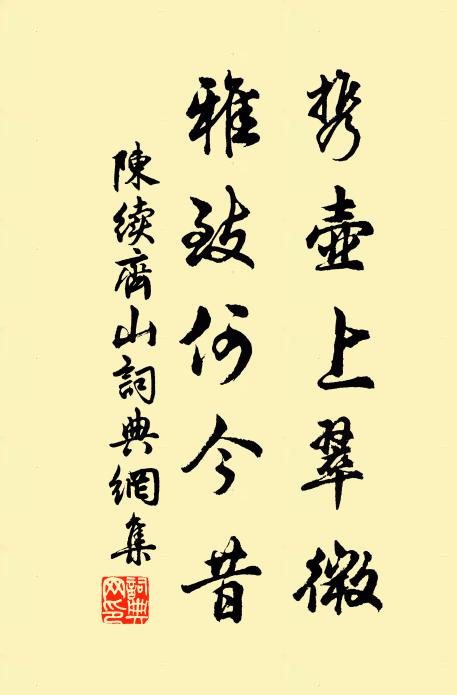 携壺上翠微
雅致何今昔
陳续齊山詞典網集
詞典网印